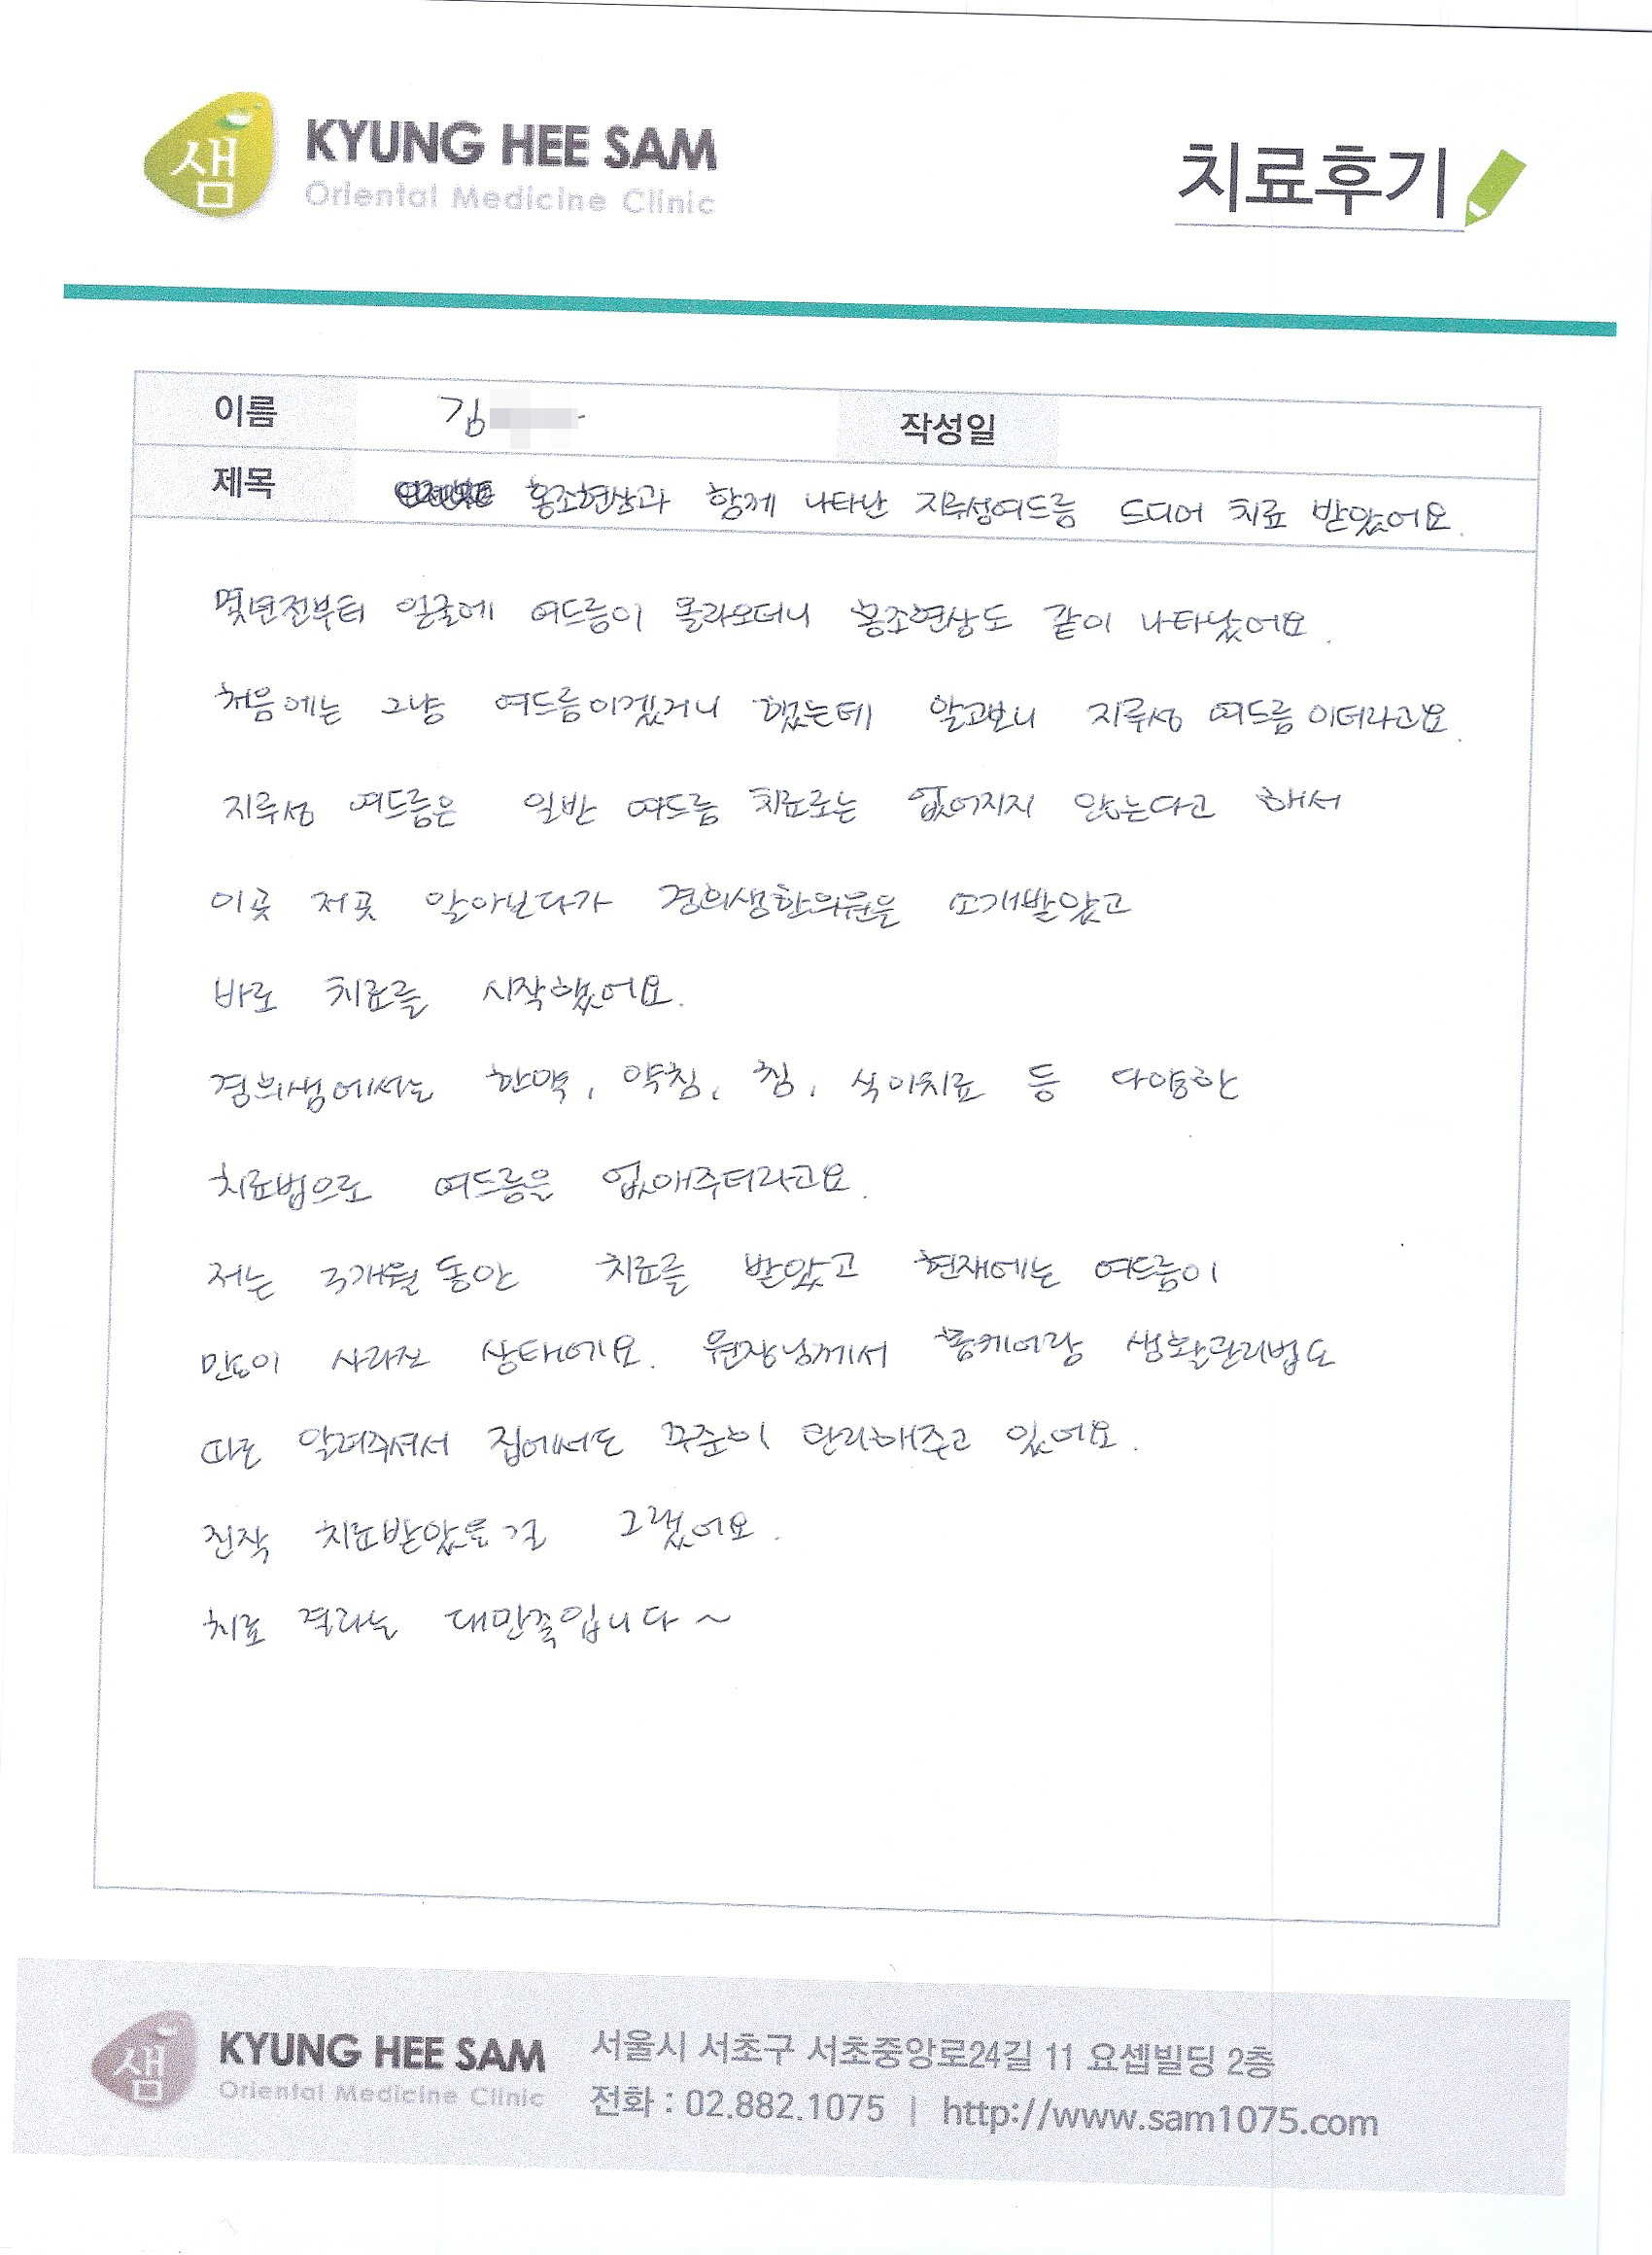 샘 KYUNG HEE SAM
Oriental Medicine Clinic
치료후기
이름 김 작성일
제목 홍조현상과 함께 나타난 지루성여드름 드디어 치료 받았어요.
몇년전부터 얼굴에 여드름이 올라오더니 홍조현상도 같이 나타났어요.
처음에는 그냥 여드름이겠거니 했는데 알고보니 지루성 여드름이더라고요.
지루성 여드름은 일반 여드름 치료로는 없어지지 않는다고 해서
이곳 저곳 알아보다가 경희샘한의원을 소개받았고
바로 치료를 시작했어요.
경희샘에서는 한약, 약침, 침, 식이치료 등 다양한
치료법으로 여드름을 없애주더라고요.
저는 3개월 동안 치료를 받았고 현재에는 여드름이
많이 사라진 상태에요. 원장님께서 홈케어랑 생활관리법도
따로 알려주셔서 집에서도 꾸준히 관리해주고 있어요.
진작 치료받았을걸 그랬어요.
치료 결과는 대만족입니다~
샘 KYUNG HEE SAM
Oriental Medicine Clinic
서울시 서초구 서초중앙로24길 11 요셉빌딩 2층
전화 : 02.882.1075 | http://www.sam1075.com